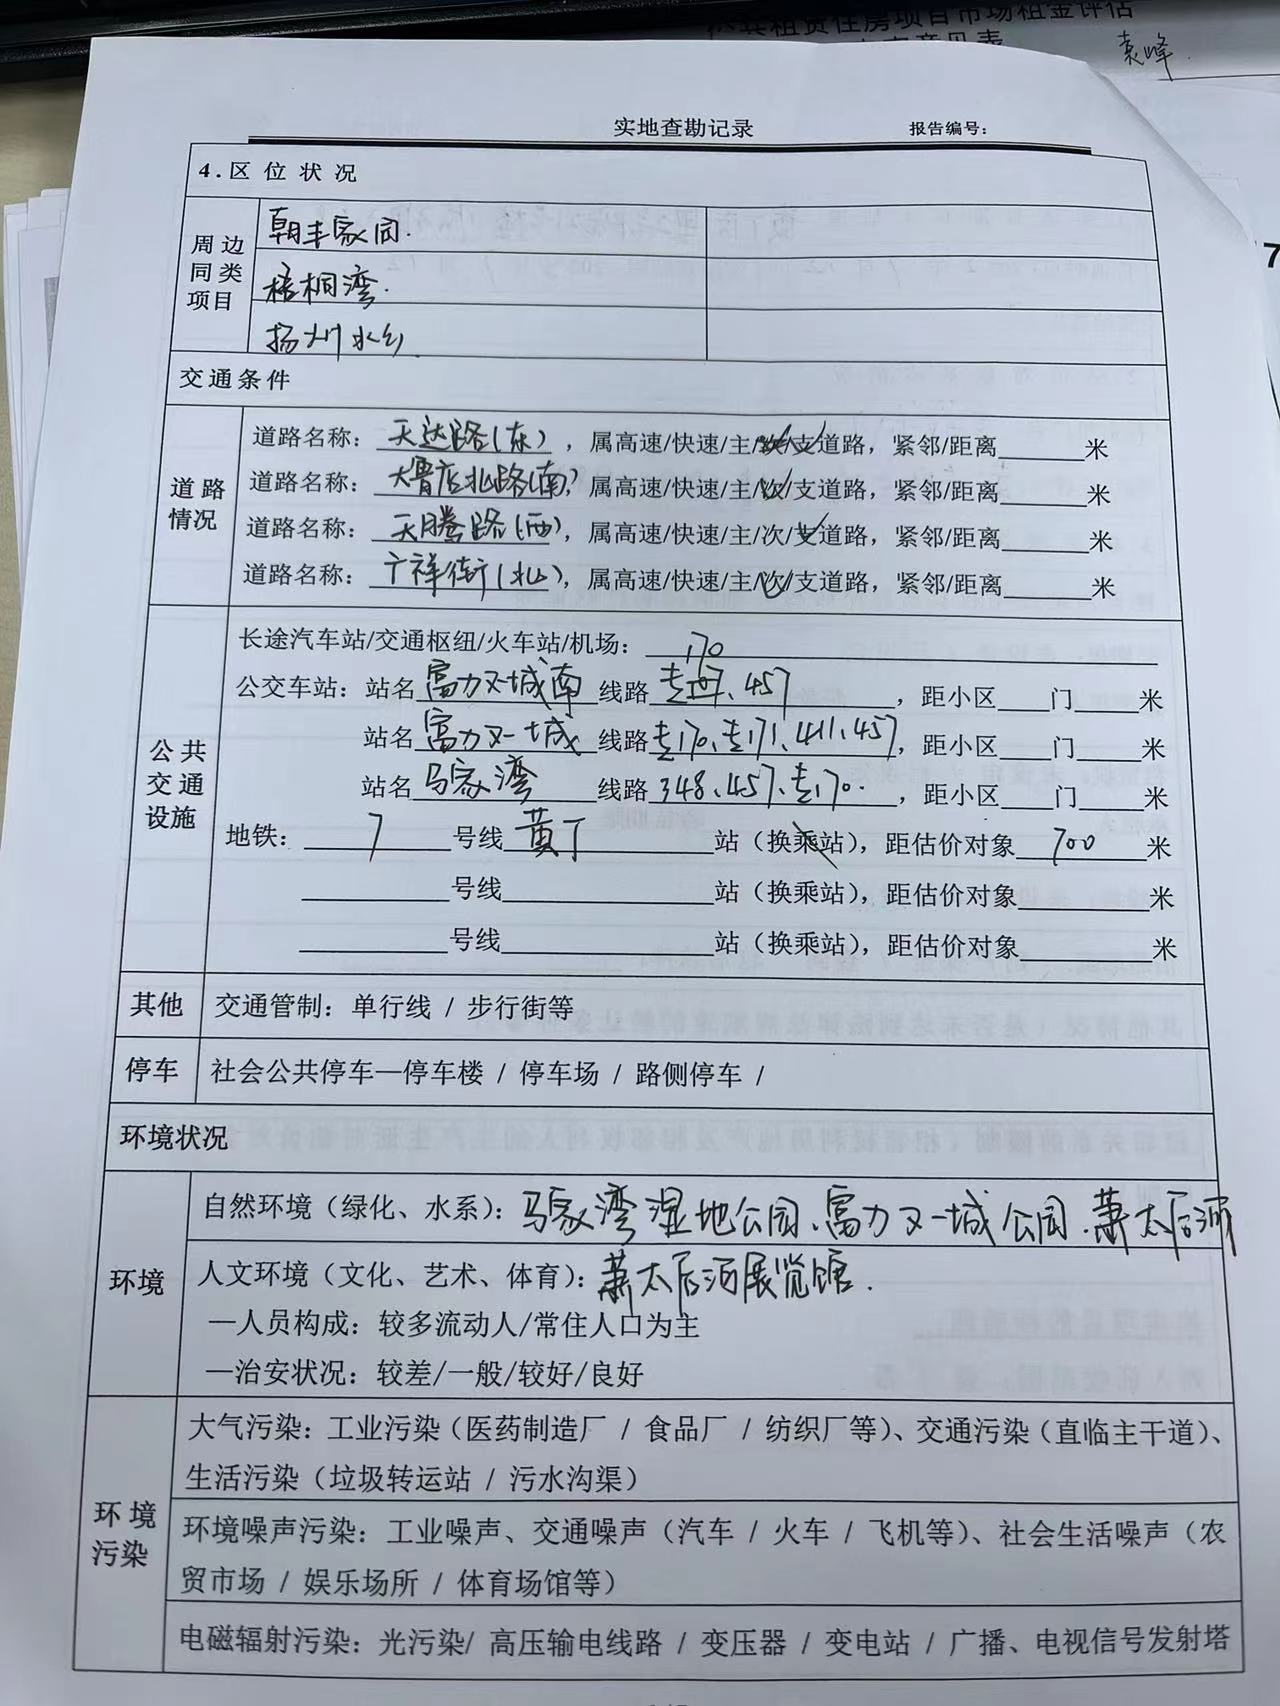 公共租赁住房项目市场租金评估
袁峰
实地查勘记录 报告编号：
4.区位状况
周边同类项目
朝丰家园.
梧桐湾.
扬州水乡.
交通条件
道路情况
道路名称：天达路(东)，属高速/快速/主/次/支道路，紧邻/距离____米
道路名称：大鲁店北路(南)，属高速/快速/主/次/支道路，紧邻/距离____米
道路名称：天腾路(西)，属高速/快速/主/次/支道路，紧邻/距离____米
道路名称：广祥街(北)，属高速/快速/主/次/支道路，紧邻/距离____米
公共交通设施
长途汽车站/交通枢纽/火车站/机场：
170
公交车站：站名富力又一城南线路专、457，距小区____门____米
站名富力又一城线路专170、专171、411、457，距小区____门____米
站名马家湾线路348、457、专170.，距小区____门____米
地铁：7号线黄厂站（换乘站），距估价对象700米
____号线____站（换乘站），距估价对象____米
____号线____站（换乘站），距估价对象____米
其他 交通管制：单行线 / 步行街等
停车 社会公共停车—停车楼 / 停车场 / 路侧停车 /
环境状况
环境
自然环境（绿化、水系）：马家湾湿地公园、富力又一城公园、萧太后河
人文环境（文化、艺术、体育）：萧太后河展览馆.
—人员构成：较多流动人/常住人口为主
—治安状况：较差/一般/较好/良好
环境污染
大气污染：工业污染（医药制造厂 / 食品厂 / 纺织厂等）、交通污染（直临主干道）、
生活污染（垃圾转运站 / 污水沟渠）
环境噪声污染：工业噪声、交通噪声（汽车 / 火车 / 飞机等）、社会生活噪声（农
贸市场 / 娱乐场所 / 体育场馆等）
电磁辐射污染：光污染/ 高压输电线路 / 变压器 / 变电站 / 广播、电视信号发射塔